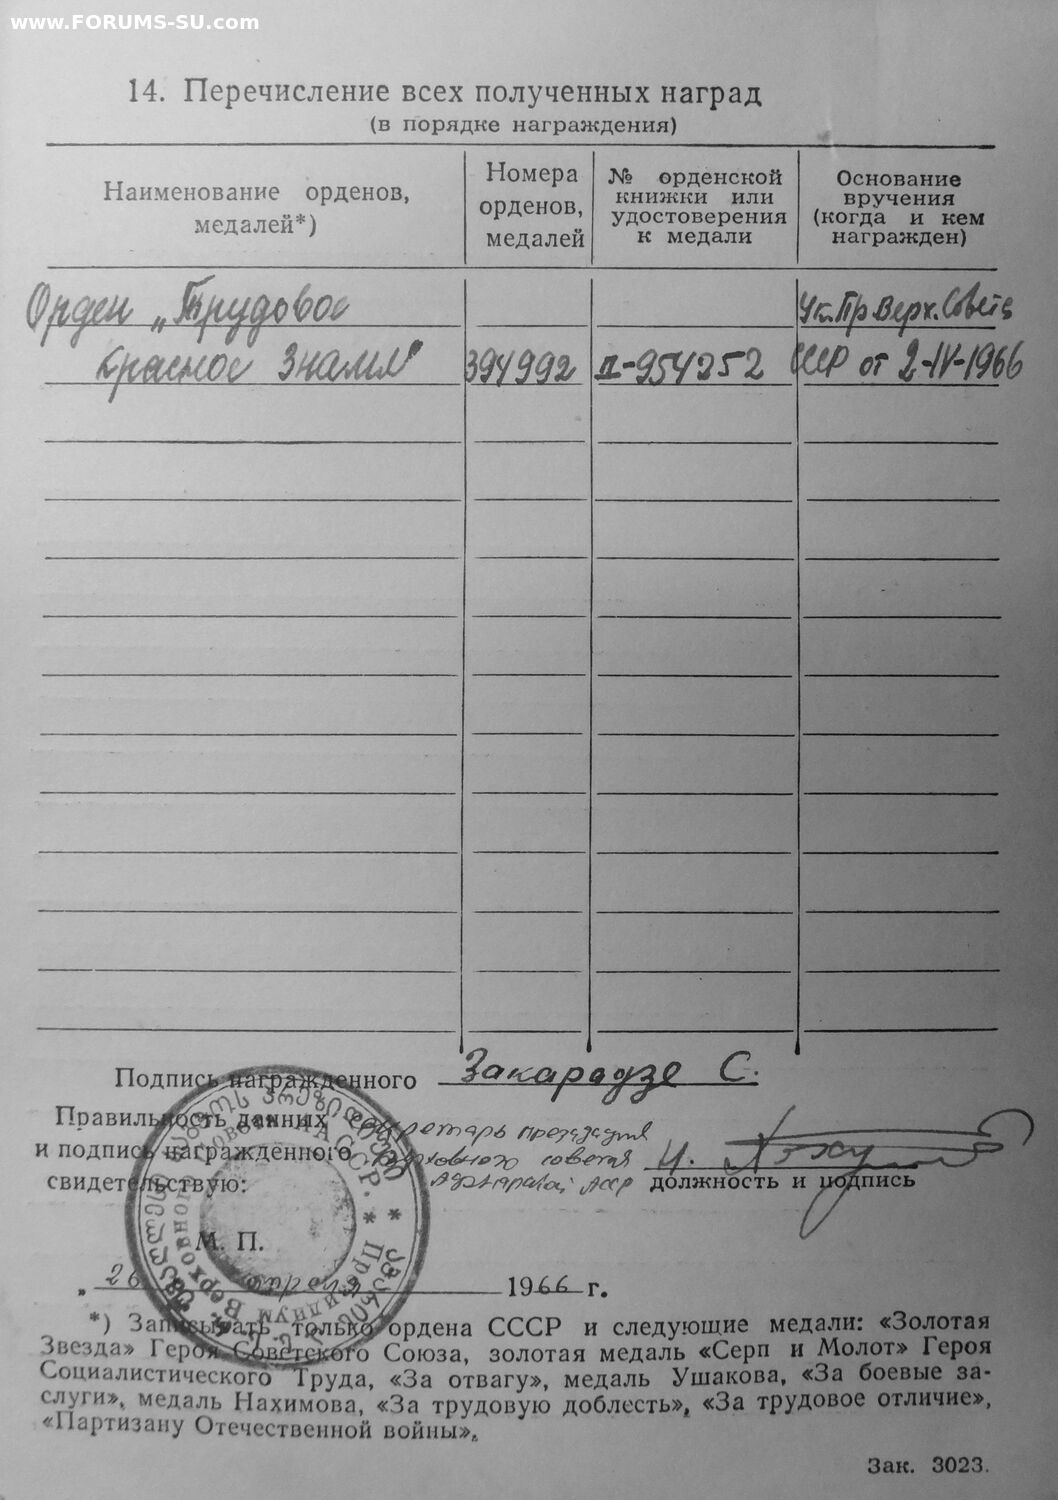 www.FORUMS-SU.com
14. Перечисление всех полученных наград
(в порядке награждения)
Наименование орденов,
медалей*)
Номера
орденов,
медалей
№ орденской
книжки или
удостоверения
к медали
Основание
вручения
(когда и кем
награжден)
Орден „Трудовое
Ук.Пр.Верх.Совета
Красное Знамя"
394992
Д-954252
СССР от 2-IV-1966
Подпись награжденного Закарадзе С.
Правильность данных секретарь президиума
и подпись награжденного верховного совета
свидетельствую: Аджарской АССР должность и подпись
М. П.
„26 апреля 1966 г.
*) Записывать только ордена СССР и следующие медали: «Золотая
Звезда» Героя Советского Союза, золотая медаль «Серп и Молот» Героя
Социалистического Труда, «За отвагу», медаль Ушакова, «За боевые за-
слуги», медаль Нахимова, «За трудовую доблесть», «За трудовое отличие»,
«Партизану Отечественной войны».
Зак. 3023.